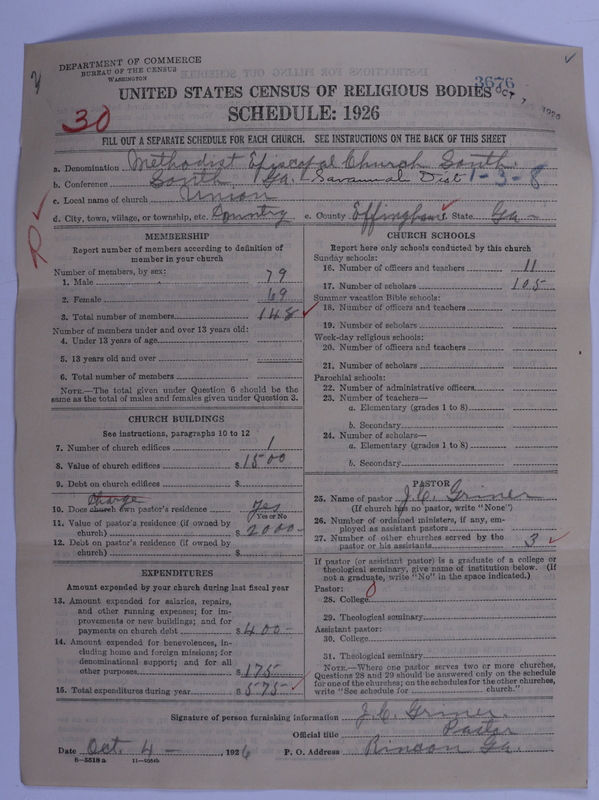 DEPARTMENT OF COMMERCE
BUREAU OF THE CENSUS
WASHINGTON
3676
OCT 7 1926
UNITED STATES CENSUS OF RELIGIOUS BODIES
SCHEDULE: 1926
30
FILL OUT A SEPARATE SCHEDULE FOR EACH CHURCH. SEE INSTRUCTIONS ON THE BACK OF THIS SHEET
a. Denomination Methodist Episcopal Church South.
b. Conference South Ga. Savannah Dist 1-3-8
c. Local name of church Union
d. City, town, village, or township, etc. Country e. County Effingham State Ga-
R
MEMBERSHIP
Report number of members according to definition of
member in your church
Number of members, by sex:
1. Male 79
2. Female 69
3. Total number of members 148
Number of members under and over 13 years old:
4. Under 13 years of age
5. 13 years old and over
6. Total number of members
NOTE.—The total given under Question 6 should be the
same as the total of males and females given under Question 3.
CHURCH BUILDINGS
See instructions, paragraphs 10 to 12
7. Number of church edifices 1
8. Value of church edifices $ 1500
9. Debt on church edifices $
Charge
10. Does church own pastor's residence yes
Yes or No
11. Value of pastor's residence (if owned by
church) $ 2000-
12. Debt on pastor's residence (if owned by
church) $
EXPENDITURES
Amount expended by your church during last fiscal year
13. Amount expended for salaries, repairs,
and other running expenses; for im-
provements or new buildings; and for
payments on church debt $ 400-
14. Amount expended for benevolences, in-
cluding home and foreign missions; for
denominational support; and for all
other purposes $ 175-
15. Total expenditures during year $ 575-
CHURCH SCHOOLS
Report here only schools conducted by this church
Sunday schools:
16. Number of officers and teachers 11
17. Number of scholars 105
Summer vacation Bible schools:
18. Number of officers and teachers
19. Number of scholars
Week-day religious schools:
20. Number of officers and teachers
21. Number of scholars
Parochial schools:
22. Number of administrative officers
23. Number of teachers—
a. Elementary (grades 1 to 8)
b. Secondary
24. Number of scholars—
a. Elementary (grades 1 to 8)
b. Secondary
PASTOR
25. Name of pastor J. C. Griner
(If church has no pastor, write "None")
26. Number of ordained ministers, if any, em-
ployed as assistant pastors
27. Number of other churches served by the
pastor or his assistants 3
If pastor (or assistant pastor) is a graduate of a college or
theological seminary, give name of institution below. (If
not a graduate, write "No" in the space indicated.)
Pastor:
28. College 0
29. Theological seminary
Assistant pastor:
30. College
31. Theological seminary
NOTE.—Where one pastor serves two or more churches,
Questions 28 and 29 should be answered only on the schedule
for one of the churches; on the schedules for the other churches,
write "See schedule for church."
Signature of person furnishing information J. C. Griner.
Official title Pastor
Date Oct. 4 - , 1926 P. O. Address Rincon Ga.
8-5518a